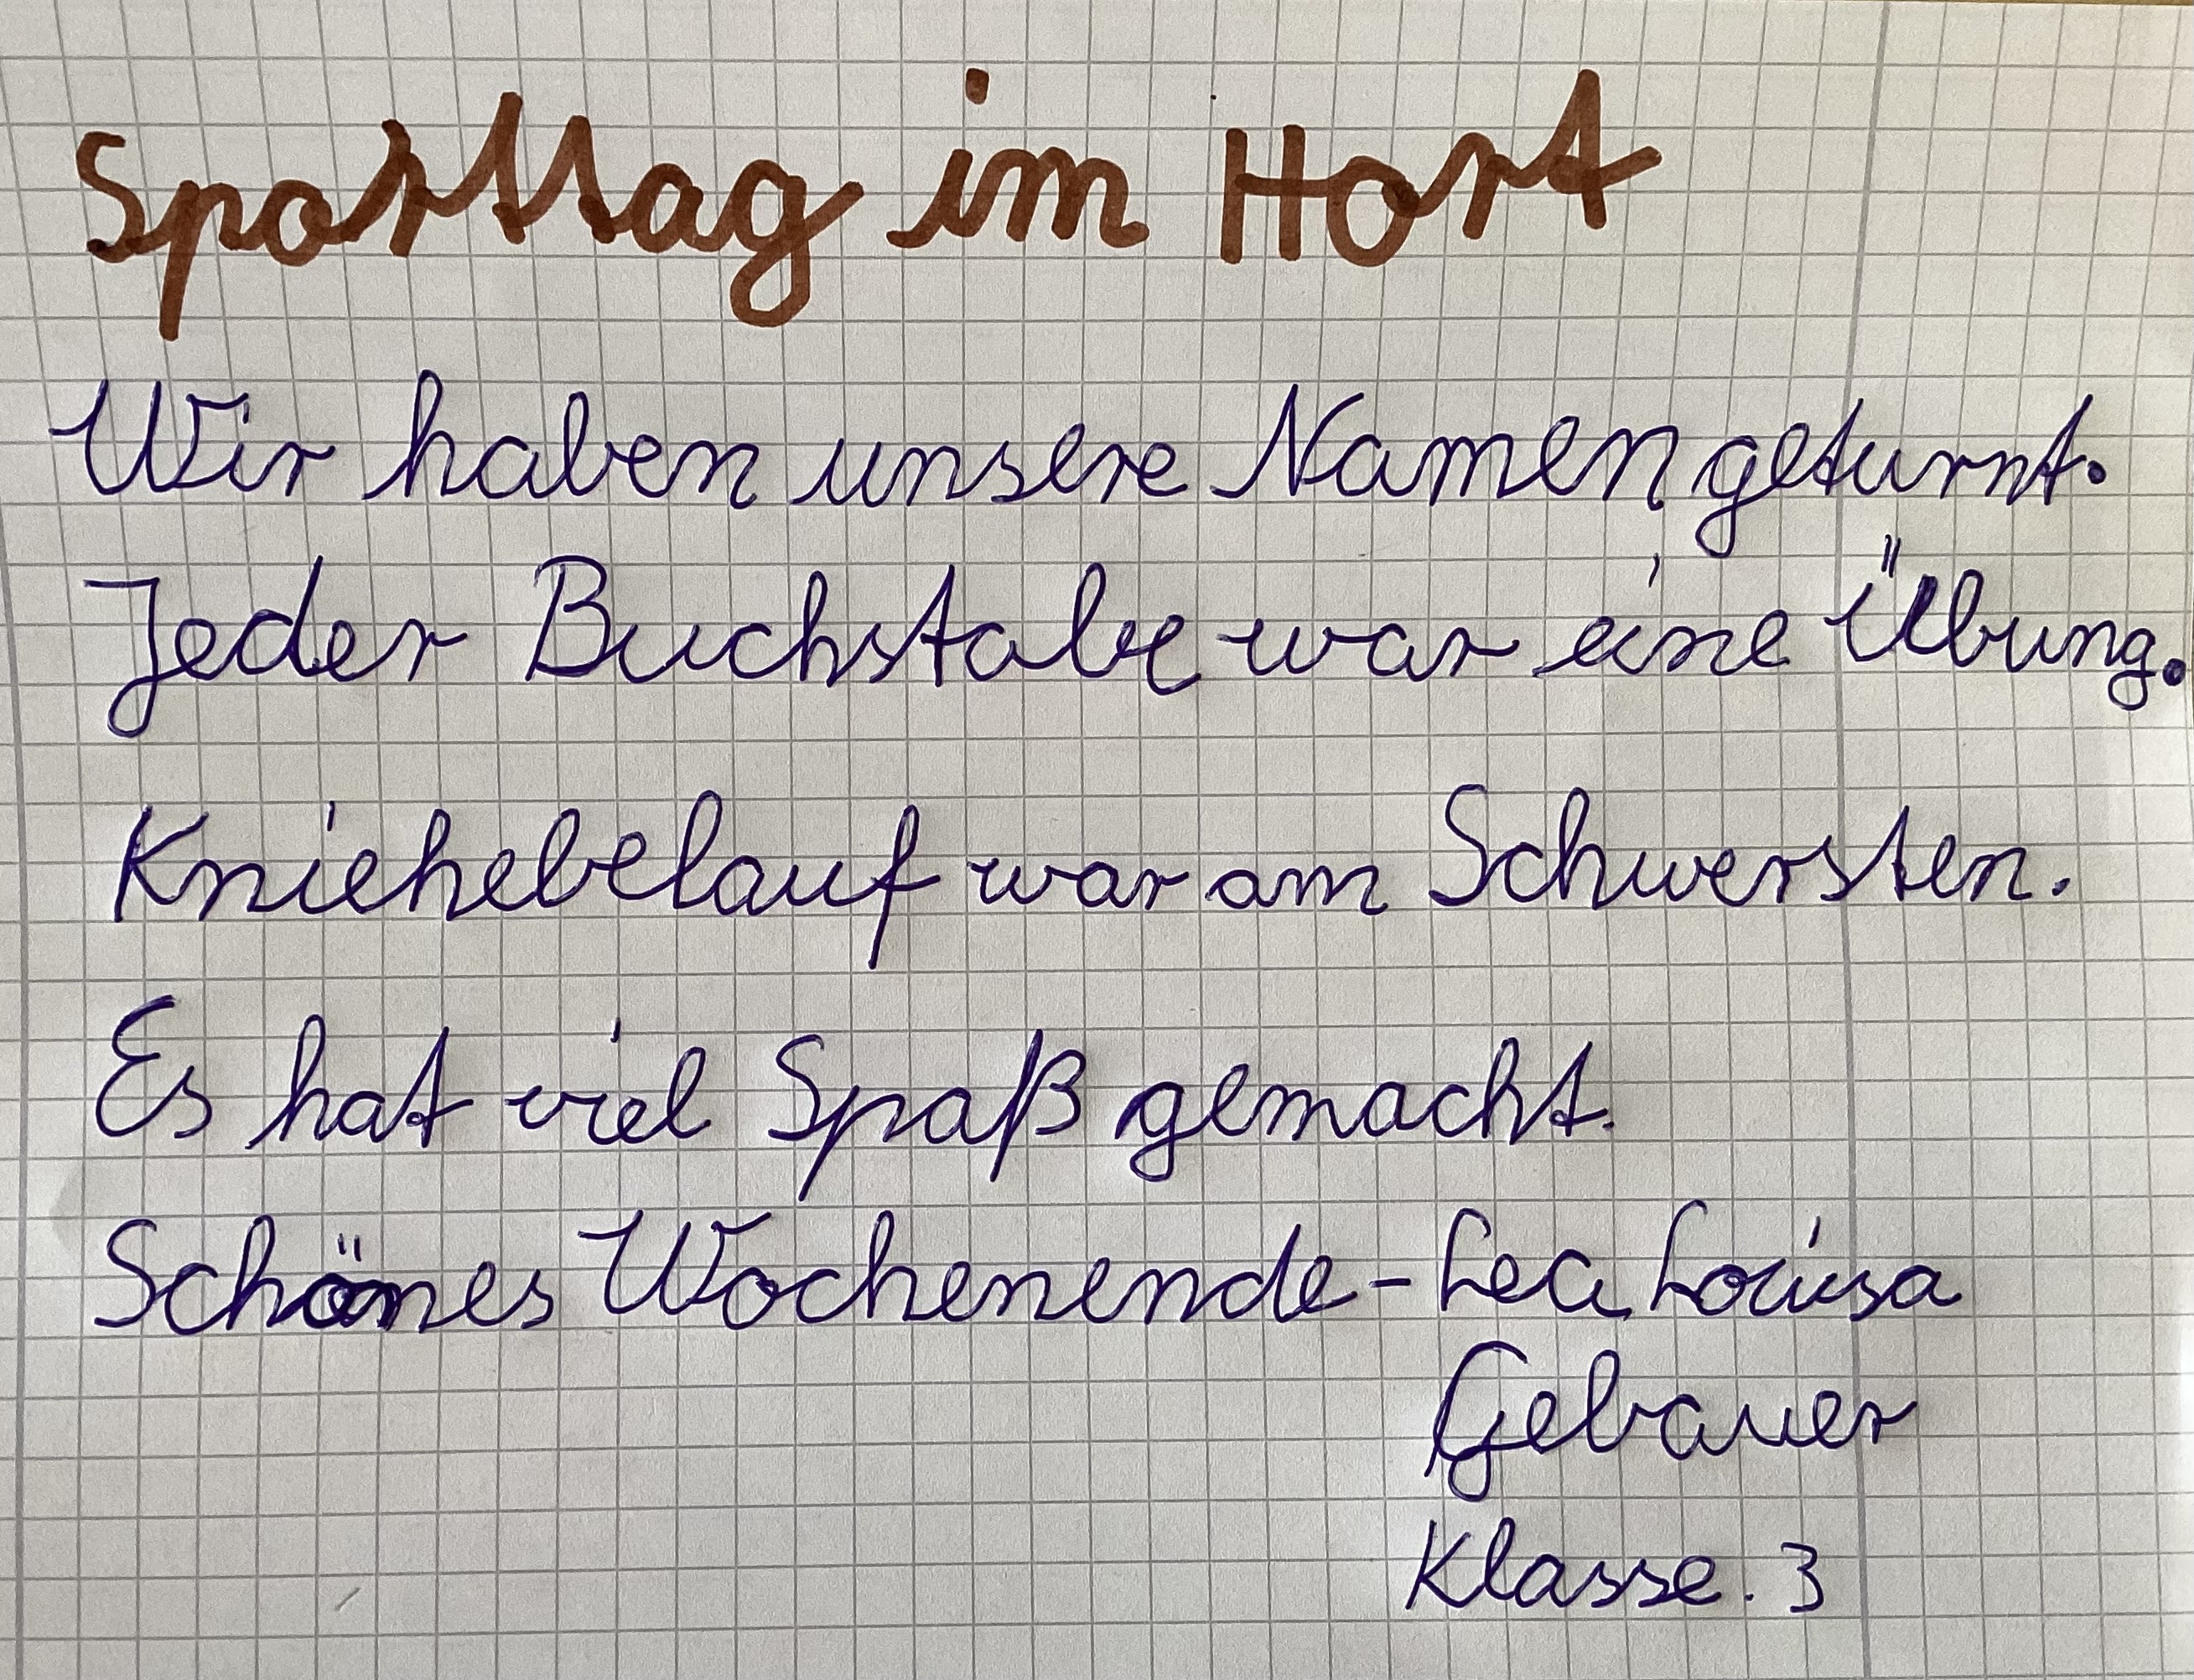 Sporttag im Hort
Wir haben unsere Namen geturnt.
Jeder Buchstabe war eine Übung.
Kniehebelauf war am Schwersten.
Es hat viel Spaß gemacht.
Schönes Wochenende - Lea Louisa
Gebauer
Klasse. 3